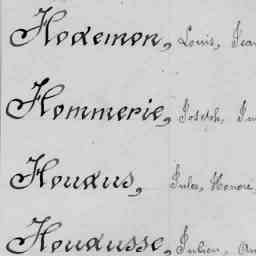 Hodemon, Louis, Jean
Hommerie, Joseph,
Houdus, Jules, Honoré,
Houdusse, Julien,